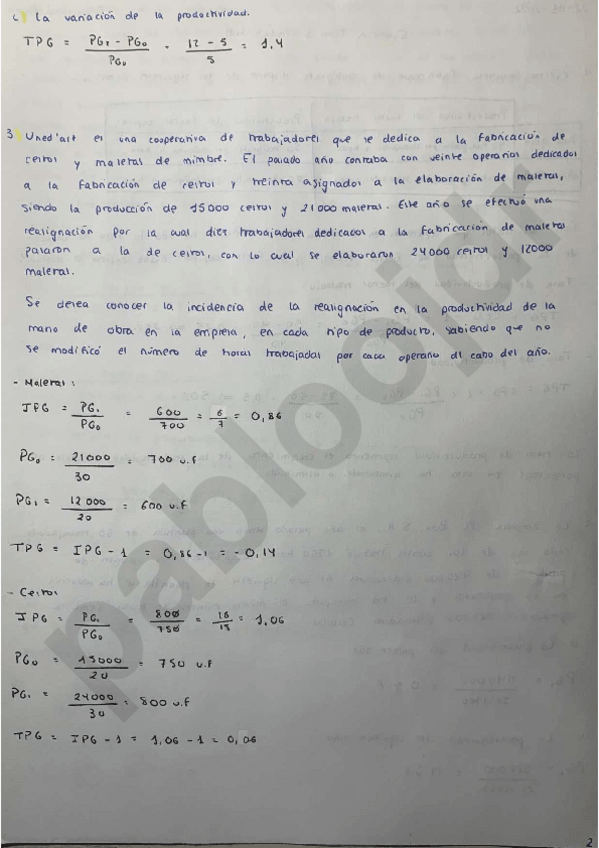 c) La variación de la productividad.
TPG = PG₁ - PG₀ / PG₀ = 12 - 5 / 5 = 1,4
3) Uned'alt es una cooperativa de trabajadores que se dedica a la fabricación de
cestos y maletas de mimbre. El pasado año contaba con veinte operarios dedicados
a la fabricación de cestos y treinta asignados a la elaboración de maletas,
siendo la producción de 15000 cestos y 21000 maletas. Este año se efectuó una
reasignación por la cual diez trabajadores dedicados a la fabricación de maletas
pasaron a la de cestos, con lo cual se elaboraron 24000 cestos y 12000
maletas.
Se desea conocer la incidencia de la reasignación en la productividad de la
mano de obra en la empresa, en cada tipo de producto, sabiendo que no
se modificó el número de horas trabajadas por cada operario al cabo del año.
- Maletas:
IPG = PG₁ / PG₀ = 600 / 700 = 6 / 7 = 0,86
PG₀ = 21000 / 30 = 700 u.f
PG₁ = 12 000 / 20 = 600 u.f
TPG = IPG - 1 = 0,86 - 1 = - 0,14
- Cestos
IPG = PG₁ / PG₀ = 800 / 750 = 16 / 15 = 1,06
PG₀ = 15000 / 20 = 750 u.f
PG₁ = 24000 / 30 = 800 u.f
TPG = IPG - 1 = 1,06 - 1 = 0,06
pabloojdr
2